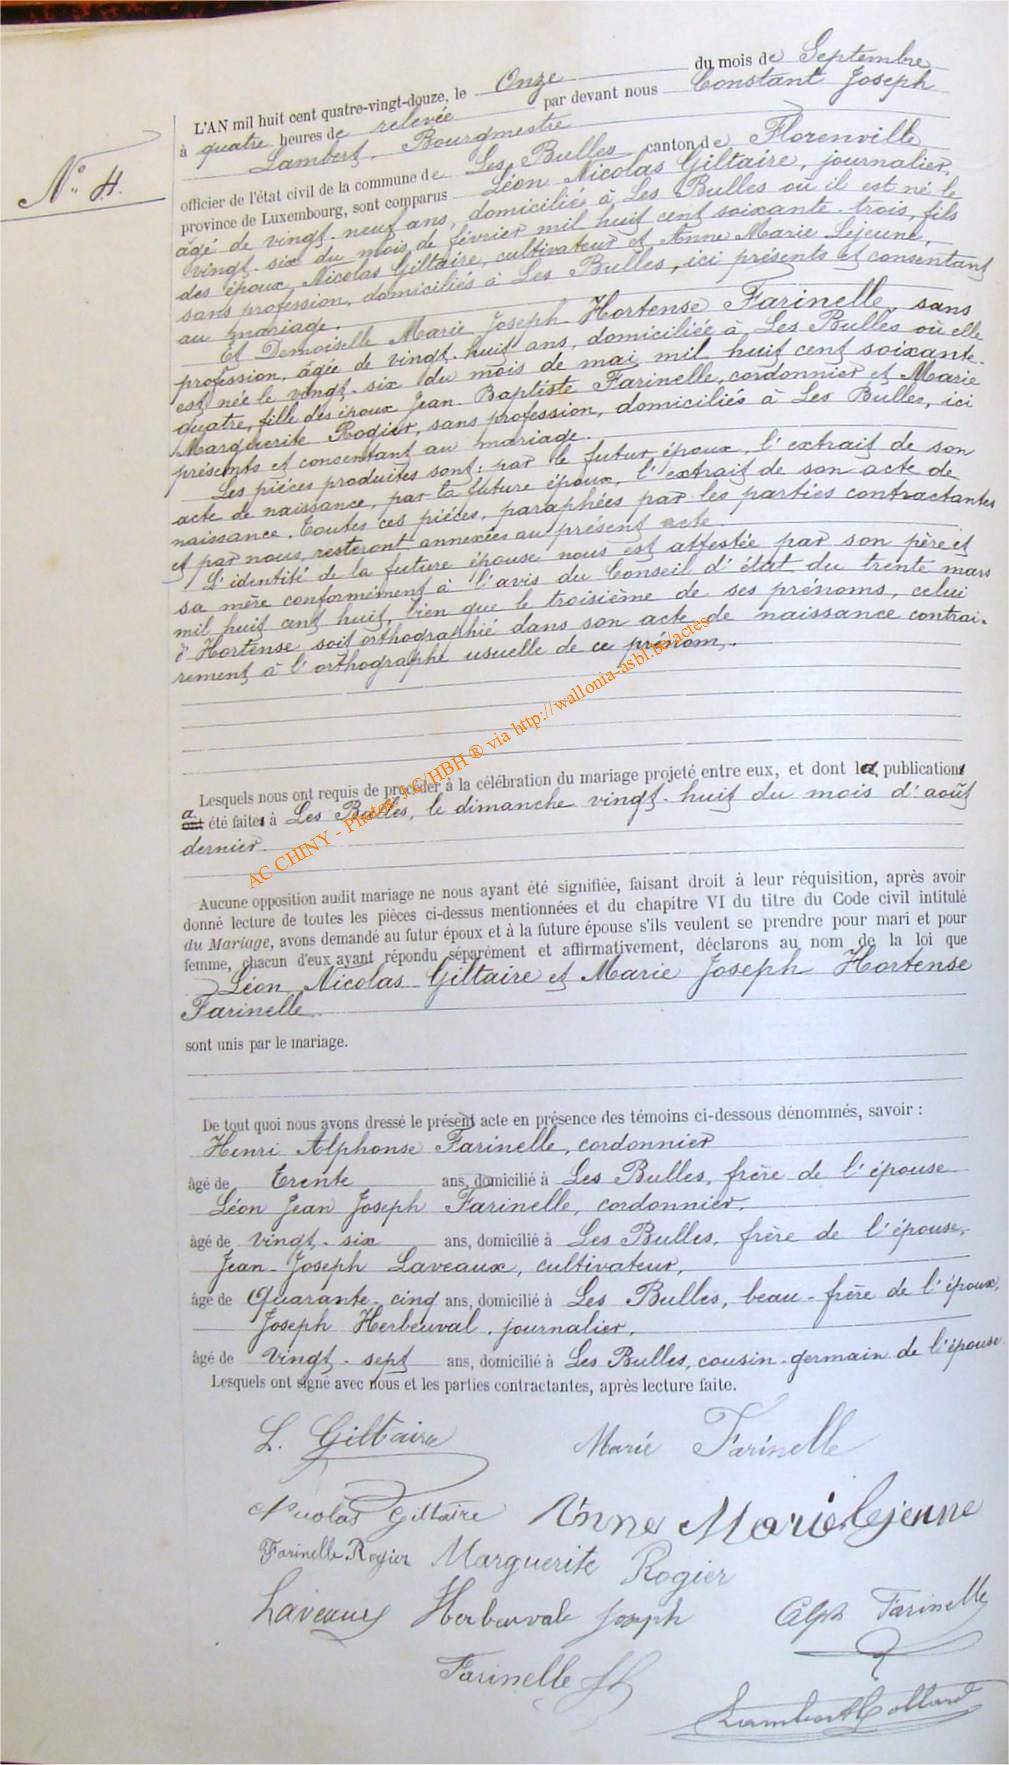 N° 4.
L'AN mil huit cent quatre-vingt-douze, le Onze du mois de Septembre
à quatre heures de relevée par devant nous Constant Joseph
Lambert, Bourgmestre
officier de l'état civil de la commune de Les Bulles canton de Florenville
province de Luxembourg, sont comparus Léon Nicolas Giltaire, journalier,
âgé de vingt-neuf ans, domicilié à Les Bulles où il est né le
vingt-six du mois de février mil huit cent soixante-trois, fils
des époux Nicolas Giltaire, cultivateur et Anne Marie Lejeune,
sans profession, domiciliés à Les Bulles, ici présents et consentant
au mariage.
Et Demoiselle Marie Joseph Hortense Farinelle, sans
profession, âgée de vingt-huit ans, domiciliée à Les Bulles où elle
est née le vingt-six du mois de mai mil huit cent soixante-
quatre, fille des époux Jean-Baptiste Farinelle, cordonnier et Marie
Marguerite Rogier, sans profession, domiciliés à Les Bulles, ici
présents et consentant au mariage.
Les pièces produites sont: par le futur époux, l'extrait de son
acte de naissance, par la future épouse, l'extrait de son acte de
naissance. Toutes ces pièces, paraphées par les parties contractantes
et par nous, resteront annexées au présent acte.
L'identité de la future épouse nous est attestée par son père et
sa mère conformément à l'avis du Conseil d'état du trente mars
mil huit cent huit, bien que le troisième de ses prénoms, celui
d'Hortense soit orthographié dans son acte de naissance contrai-
rement à l'orthographe usuelle de ce prénom.
AC CHINY - Photos AC/HBH ® via http://wallonia-asbl.be/actes
Lesquels nous ont requis de procéder à la célébration du mariage projeté entre eux, et dont la publication
a
ont été faite à Les Bulles, le dimanche vingt-huit du mois d'août
dernier.
Aucune opposition audit mariage ne nous ayant été signifiée, faisant droit à leur réquisition, après avoir
donné lecture de toutes les pièces ci-dessus mentionnées et du chapitre VI du titre du Code civil intitulé
du Mariage, avons demandé au futur époux et à la future épouse s'ils veulent se prendre pour mari et pour
femme, chacun d'eux ayant répondu séparément et affirmativement, déclarons au nom de la loi que
Léon Nicolas Giltaire et Marie Joseph Hortense
Farinelle
sont unis par le mariage.
De tout quoi nous avons dressé le présent acte en présence des témoins ci-dessous dénommés, savoir :
Henri Alphonse Farinelle, cordonnier
âgé de Trente ans, domicilié à Les Bulles, frère de l'épouse
Léon Jean Joseph Farinelle, cordonnier,
âgé de vingt-six ans, domicilié à Les Bulles, frère de l'épouse,
Jean-Joseph Laveaux, cultivateur,
âgé de Quarante-cinq ans, domicilié à Les Bulles, beau-frère de l'époux,
Joseph Herbeuval, journalier,
âgé de vingt-sept ans, domicilié à Les Bulles, cousin-germain de l'épouse.
Lesquels ont signé avec nous et les parties contractantes, après lecture faite.
L. Giltaire Marie Farinelle
Nicolas Giltaire Anne Marie Lejeune
Farinelle Rogier Marguerite Rogier
Laveaux Herbeuval Joseph Alph Farinelle
Farinelle
Lambert Collard